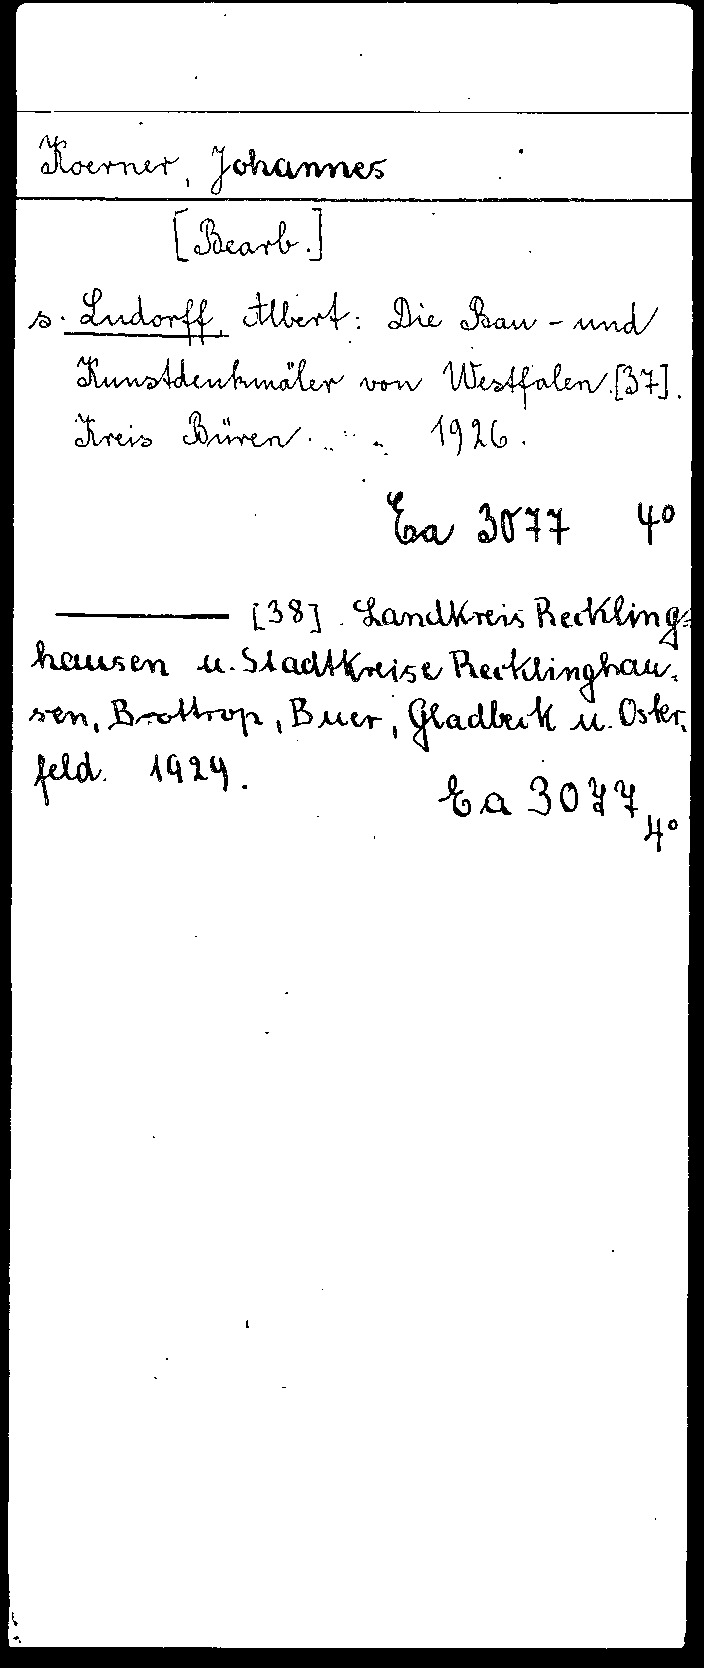 Koerner, Johannes
[Bearb.]
s. Ludorff, Albert: Die Bau- und
Kunstdenkmäler von Westfalen. [37].
Kreis Büren. 1926.
Ea 3077 4°
——— [38]. Landkreis Reckling-
hausen u. Stadtkreise Recklinghau-
sen, Brottrop, Buer, Gladbeck u. Oster-
feld. 1929.
Ea 3077 4°